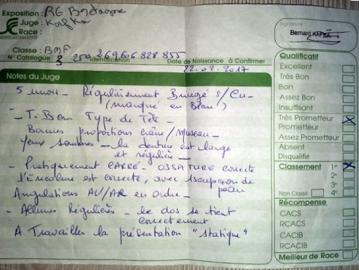 Exposition RE Bretagne
Juge : Kafka
Race :
Classe : BPF
N° Catalogue 3 250 269606 828 855
Date de Naissance à Confirmer
22.08.2017
Notes du Juge
5 mois - Régulièrement
(marqué en Blanc)
- T. Bon Type de Tête -
Bonnes proportions crâne/Museau -
Yeux sombres - la denture est large
et régulière -
- Pratiquement CARRÉ - OSSATURE correcte
l'encolure est correcte, avec
peau
Angulations AV/AR en ordre -
- Allures Régulières - le dos se tient
correctement
A Travailler la présentation "statique"
Signature
Bernard KAFKA
Qualificatif
Excellent
Très Bon
Bon
Assez Bon
Insuffisant
Très Prometteur X
Prometteur
Assez Prometteur
Absent
Disqualifié
Classement 1er X
2e
3e
Non Classé 4e
Récompense
CACS
RCACS
CACIB
RCACIB
Meilleur de Race